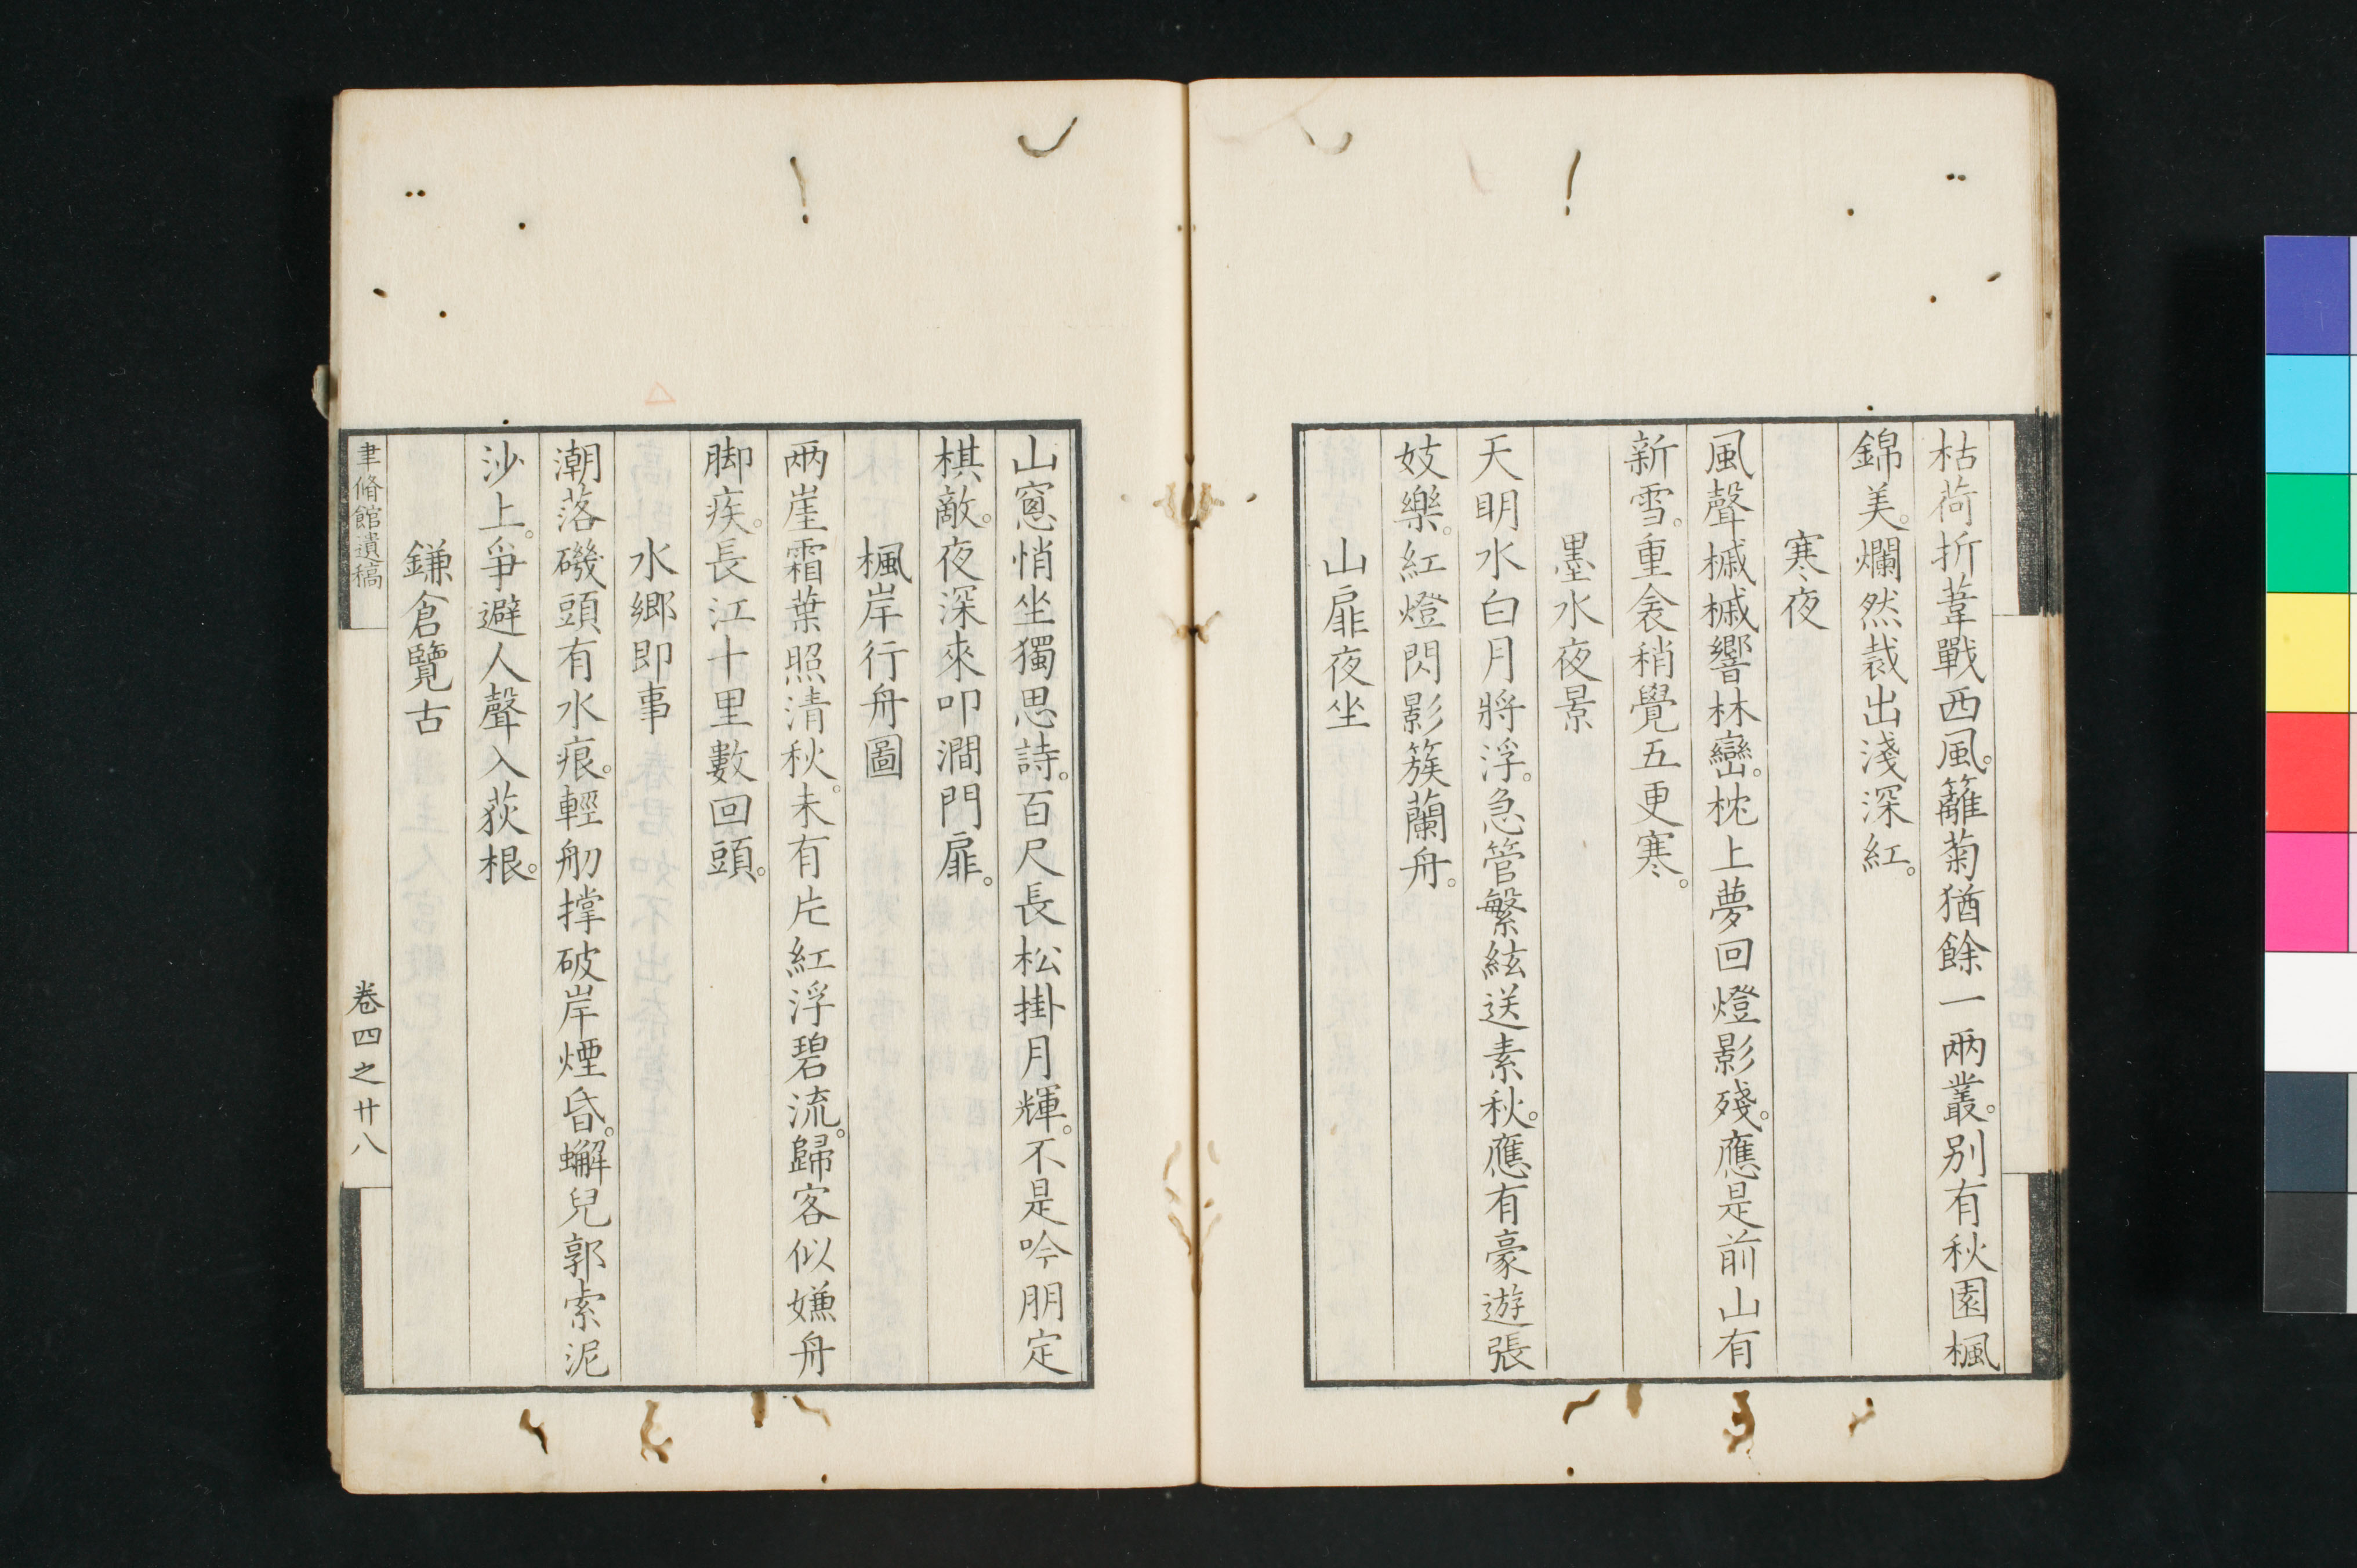 枯荷折葦戰西風。籬菊猶餘一兩叢。別有秋園楓
錦美。爛然裁出淺深紅。
寒夜
風聲槭槭響林巒。枕上夢回燈影殘。應是前山有
新雪。重衾稍覺五更寒。
墨水夜景
天明水白月將浮。急管繁絃送素秋。應有豪遊張
妓樂。紅燈閃影簇蘭舟。
山扉夜坐
山窓悄坐獨思詩。百尺長松掛月輝。不是吟朋定
棋敵。夜深來叩澗門扉。
楓岸行舟圖
兩崖霜葉照清秋。未有片紅浮碧流。歸客似嫌舟
脚疾。長江十里數回頭。
水鄉即事
潮落磯頭有水痕。輕舠撑破岸煙昏。蠏兒郭索泥
沙上。爭避人聲入荻根。
鎌倉覽古
聿脩館遺稿
卷四之廿八